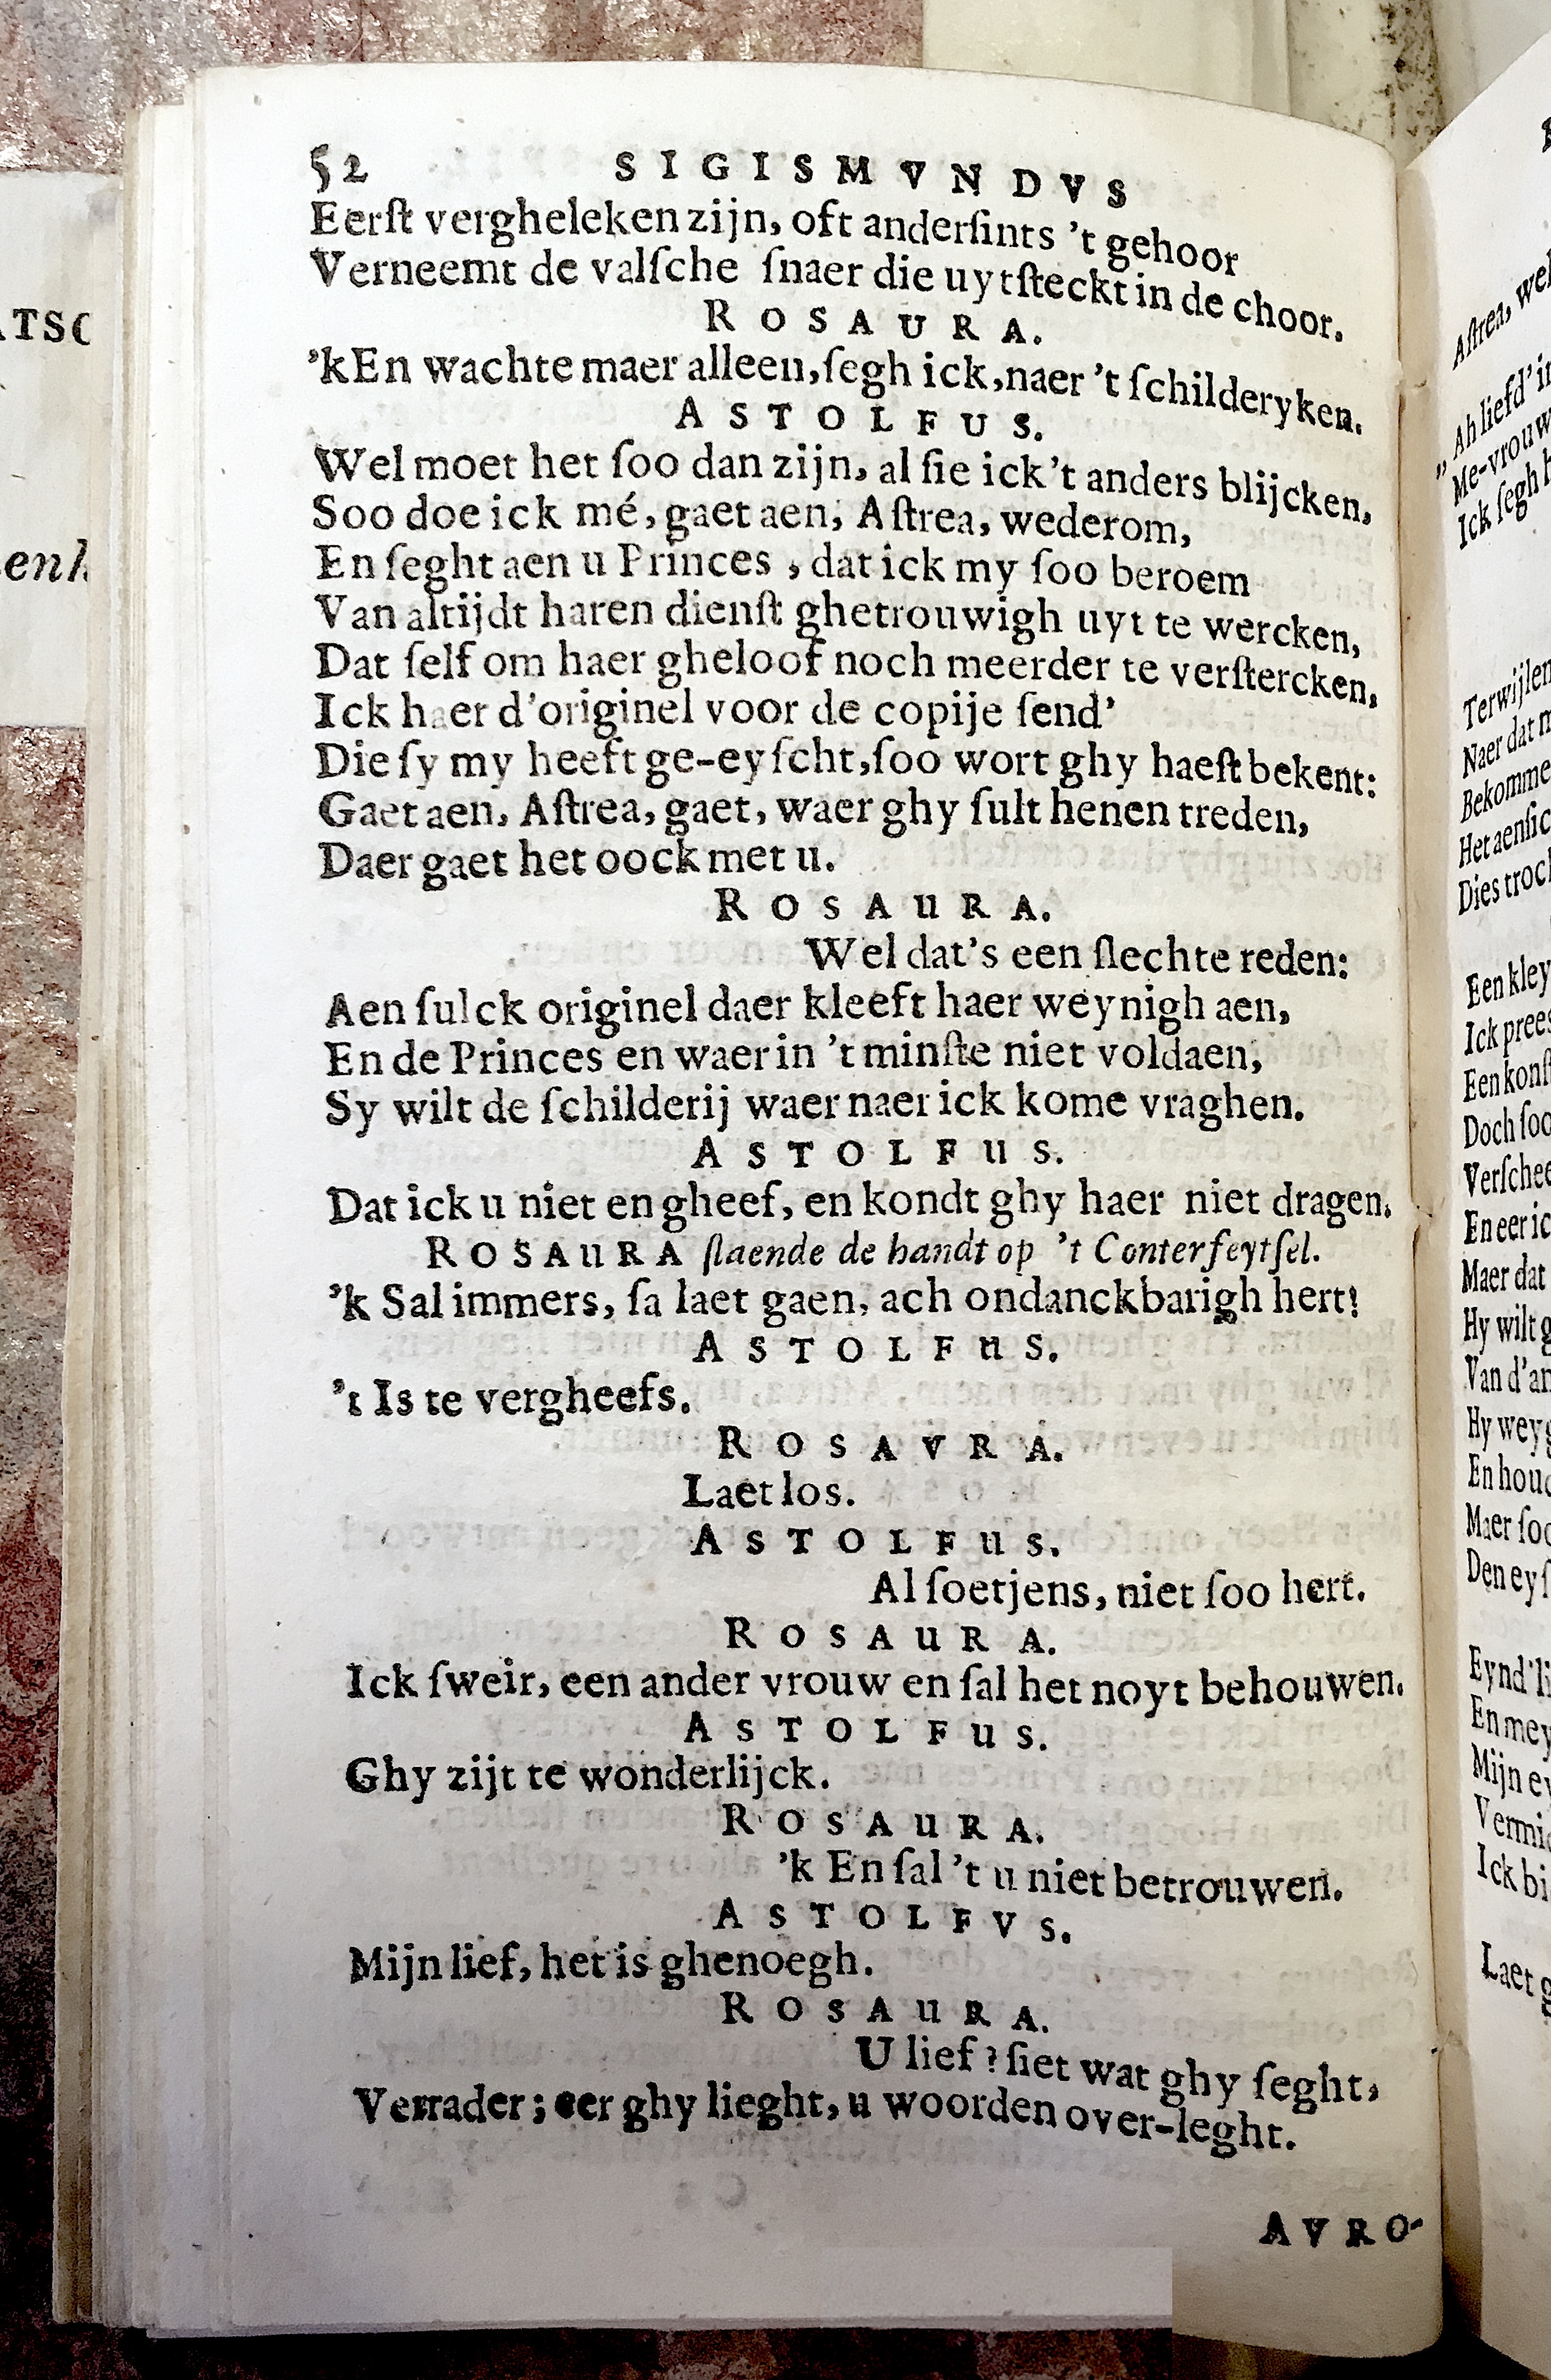 52 SIGISMVNDVS
Eerſt vergheleken zijn, oft anderſints 't gehoor
Verneemt de valſche ſnaer die uytſteckt in de choor.
ROSAURA.
'kEn wachte maer alleen, ſegh ick, naer 't ſchilderyken.
ASTOLFUS.
Wel moet het ſoo dan zijn, al ſie ick 't anders blijcken,
Soo doe ick mé, gaet aen, Aſtrea, wederom,
En ſeght aen u Princes, dat ick my ſoo beroem
Van altijdt haren dienſt ghetrouwigh uyt te wercken,
Dat ſelf om haer gheloof noch meerder te verſtercken,
Ick haer d'originel voor de copije ſend'
Die ſy my heeft ge-eyſcht, ſoo wort ghy haeſt bekent:
Gaet aen, Aſtrea, gaet, waer ghy ſult henen treden,
Daer gaet het oock met u.
ROSAURA.
Wel dat's een ſlechte reden:
Aen ſulck originel daer kleeft haer weynigh aen,
En de Princes en waer in 't minſte niet voldaen,
Sy wilt de ſchilderij waer naer ick kome vraghen.
ASTOLFUS.
Dat ick u niet en gheef, en kondt ghy haer niet dragen.
ROSAURA ſlaende de handt op 't Conterfeytſel.
'k Sal immers, ſa laet gaen, ach ondanckbarigh hert!
ASTOLFUS.
't Is te vergheefs.
ROSAVRA.
Laet los.
ASTOLFUS.
Al ſoetjens, niet ſoo hert.
ROSAURA.
Ick ſweir, een ander vrouw en ſal het noyt behouwen.
ASTOLFUS.
Ghy zijt te wonderlijck.
ROSAURA.
'k En ſal 't u niet betrouwen.
ASTOLFVS.
Mijn lief, het is ghenoegh.
ROSAURA.
U lief? ſiet wat ghy ſeght,
Verrader; eer ghy lieght, u woorden over-leght.
AVRO-
Aſtrea, wel
„ Ah liefd' in
Me-vrouw
Ick ſegh h
Terwijlen
Naer dat m
Bekomme
Het aenſic
Dies troc
Een kley
Ick prees
Een konſt
Doch ſoo
Verſchee
En eer ic
Maer dat
Hy wilt g
Van d'an
Hy weyg
En houd
Maer ſoo
Den eyſ
Eynd'li
En mey
Mijn ey
Vermi
Ick bi
Laet g